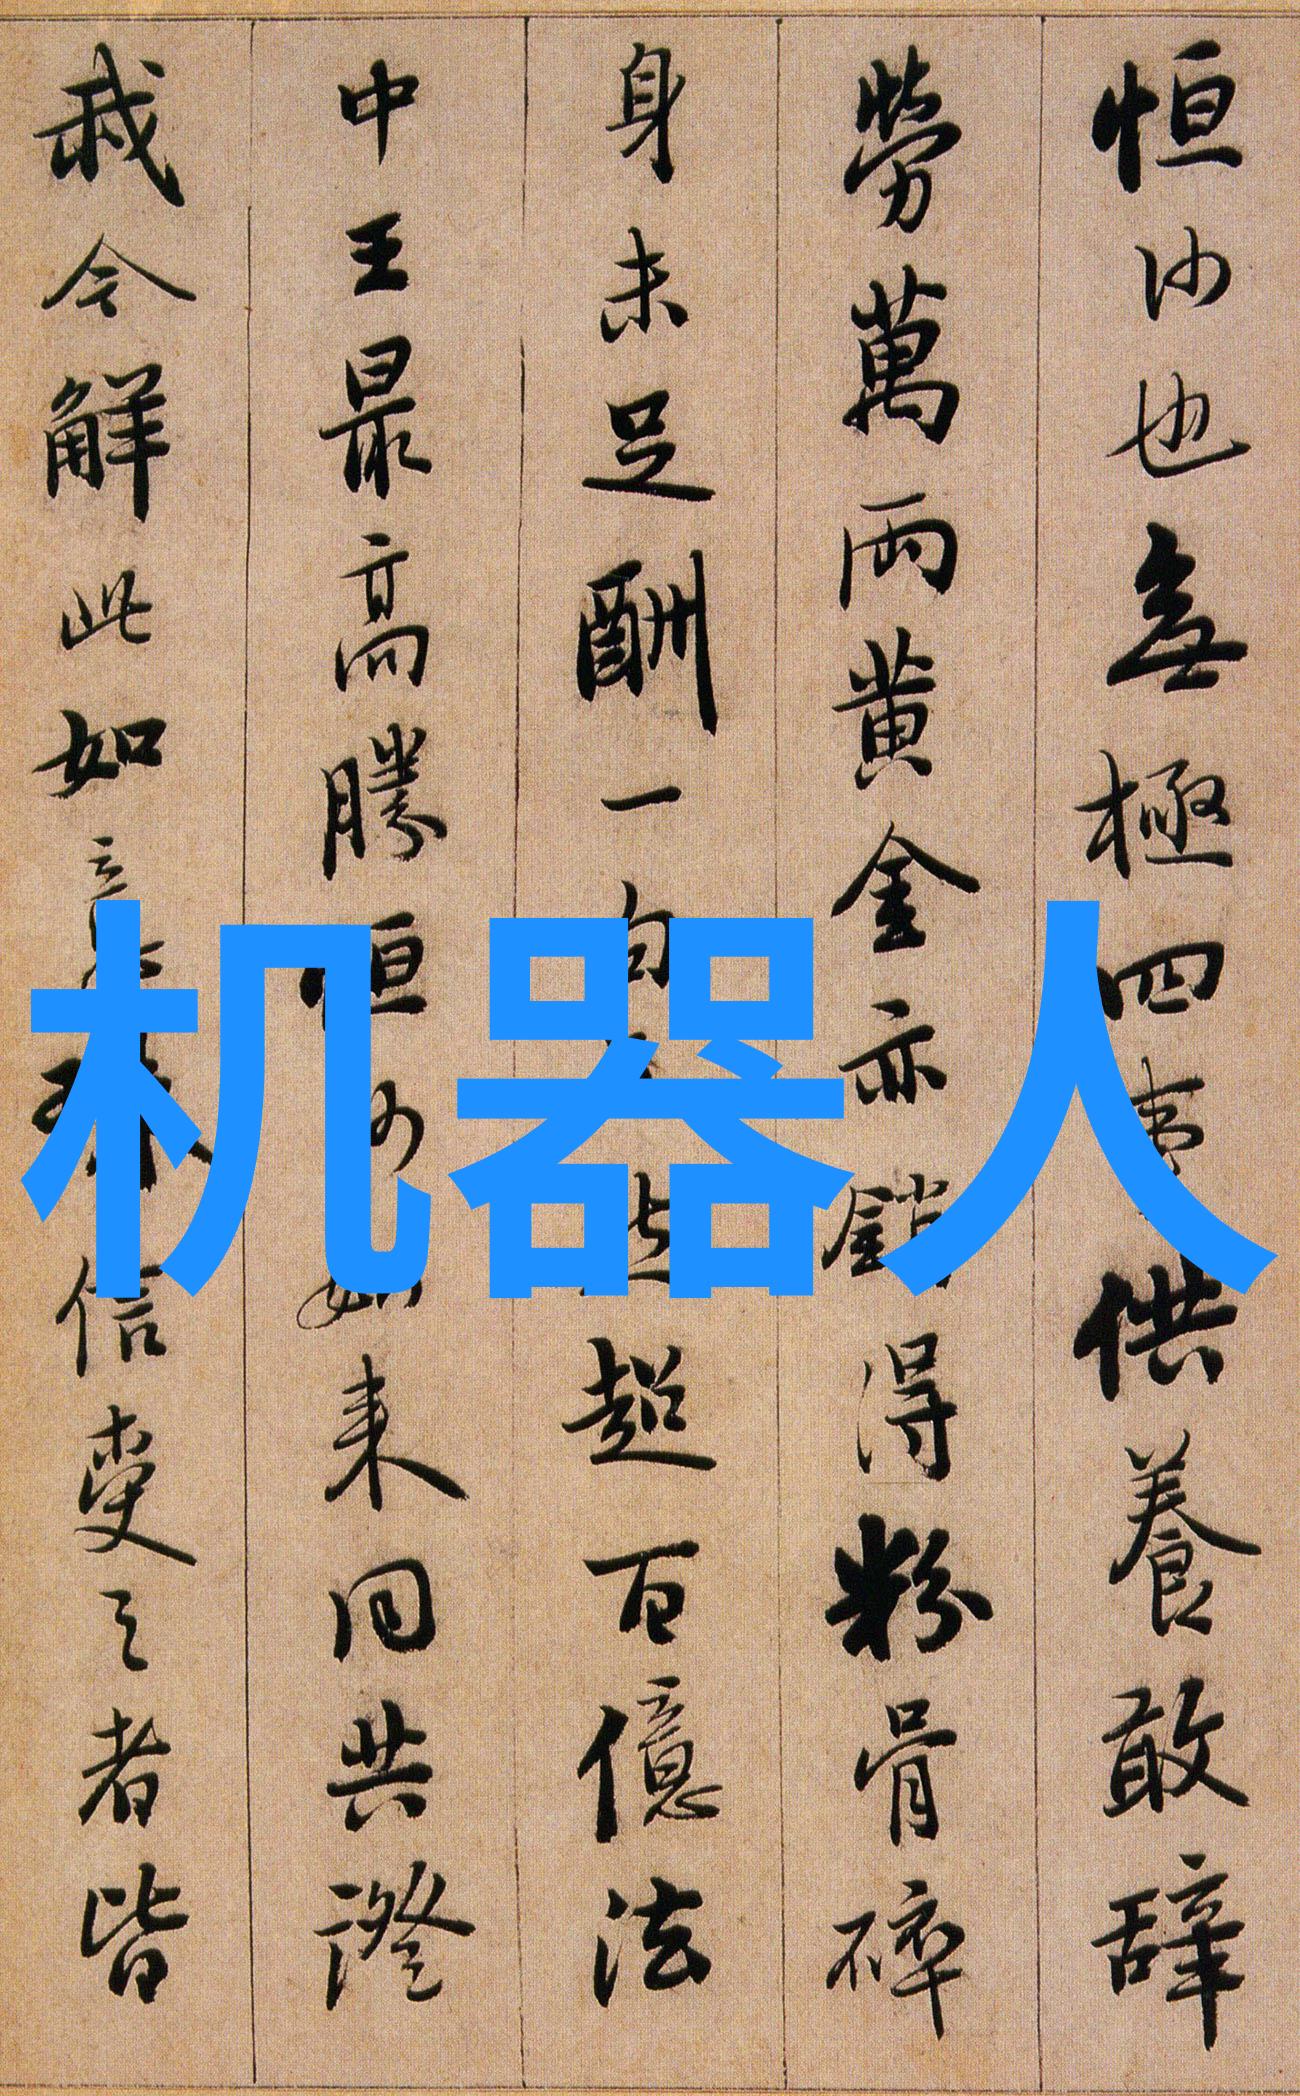 恒沙也無極四事供養敢辞
勞萬兩黃金亦銷得粉骨碎
身未足酬一句超百億法
中王最高勝恒沙如来同共證
我今解此如意信受之者皆
机器人